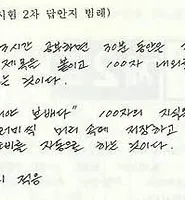 시험 2차 답안지 범례)
3시간 공부하면 30분 동안은
제목을 붙이고 100자 내외
는 것이다.
야 보배다" 100자의 지식을
머리 속에 저장하고
를 자동으로 하는 것이다.
적응